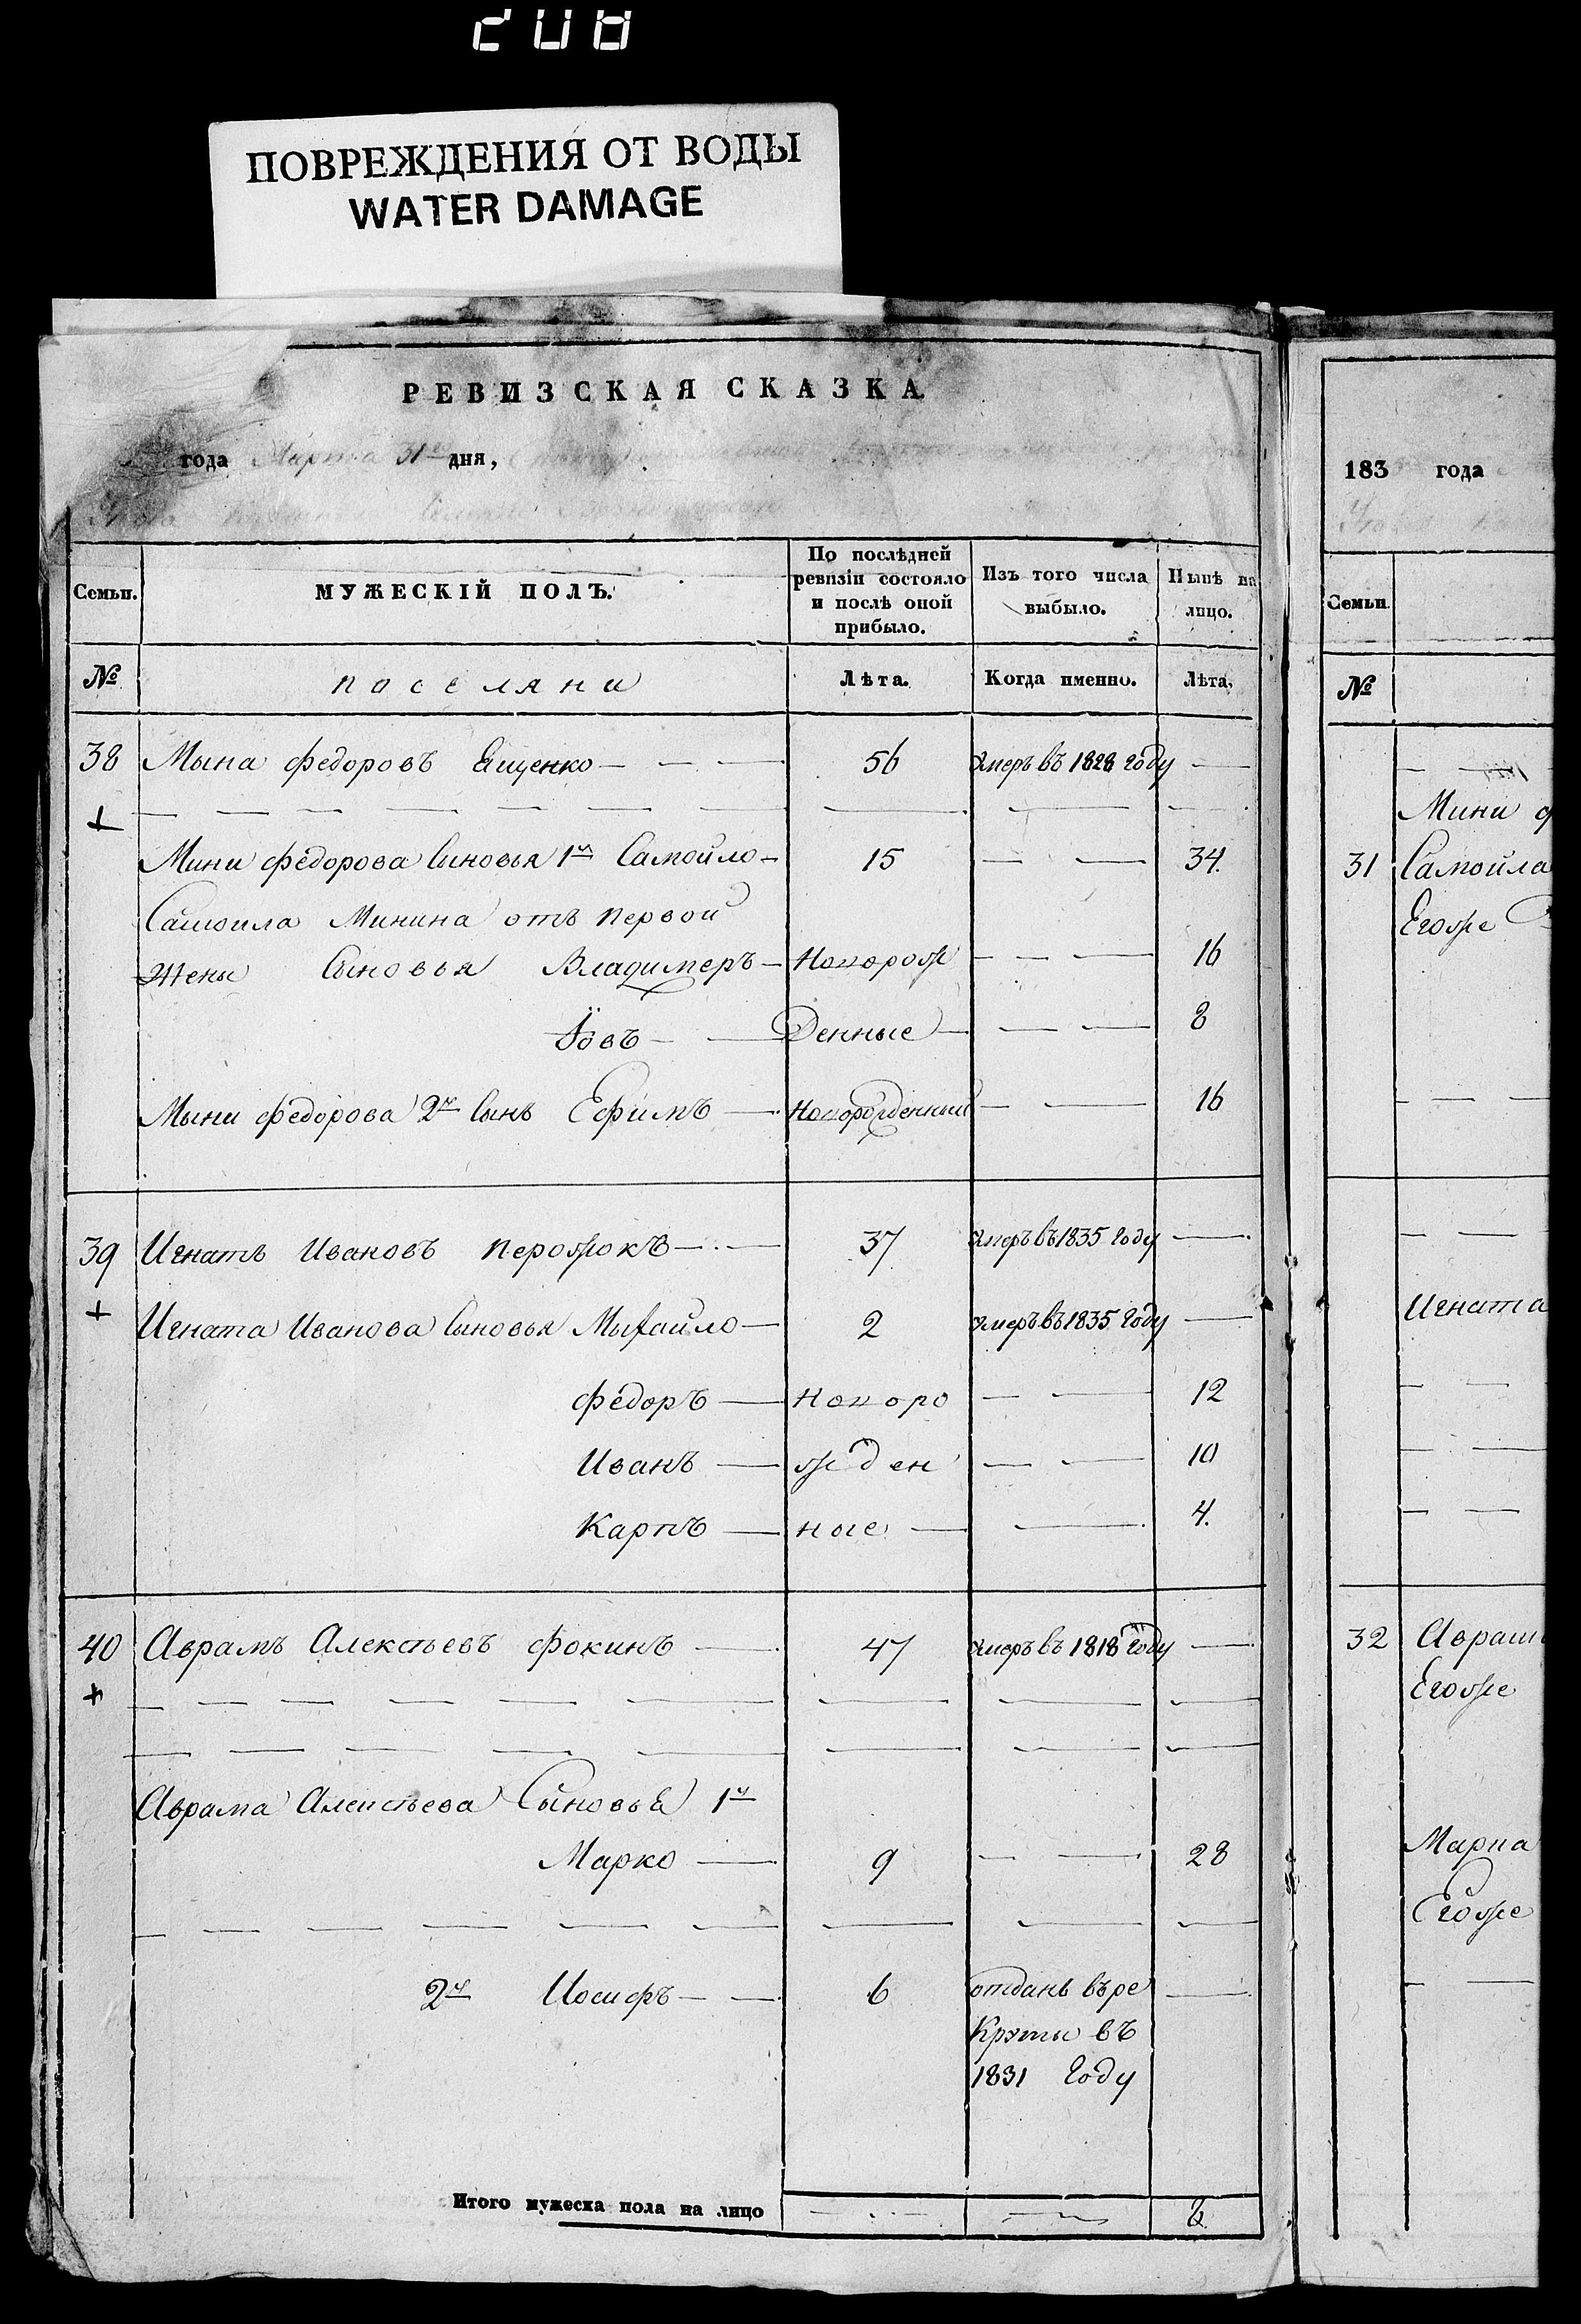 208
ПОВРЕЖДЕНИЯ ОТ ВОДЫ
WATER DAMAGE
РЕВИЗСКАЯ СКАЗКА.
года Марта 31го дня,
Семьи. МУЖЕСКІЙ ПОЛЪ. По послѣдней ревизіи состояло и послѣ оной прибыло. Изъ того числа выбыло. Нынѣ на лицо.
№ поселяни Лѣта. Когда именно. Лѣта.
38 Мына федоровъ Ещенко 56 умеръ въ 1828 году
Мини федорова сыновья 1й Самойло 15 34.
Самоила Минина отъ первой
жены сыновья Владимеръ Новорож 16
Іовъ денные 8
Мыни федорова 2й сынъ Ефимъ Новорожденный 16
39 Игнатъ Ивановъ перожокъ 37 умеръ въ 1835 году
Игната Иванова сыновья Михайло 2 умеръ въ 1835 году
федоръ Новоро 12
Иванъ жден 10
Карпъ ные 4.
40 Аврамъ Алексѣевъ фокинъ 47 умеръ въ 1818 году
Аврама Алексѣева Сыновья 1й
Марко 9 28
2й Иосифъ 6 отданъ въ ре
круты въ
1831 году
Итого мужеска пола на лицо 8
183 года
Семьи
№
Мини ф
31 Самойла
Егоже
Игната
32 Аврам
Егоже
Марка
Егоже